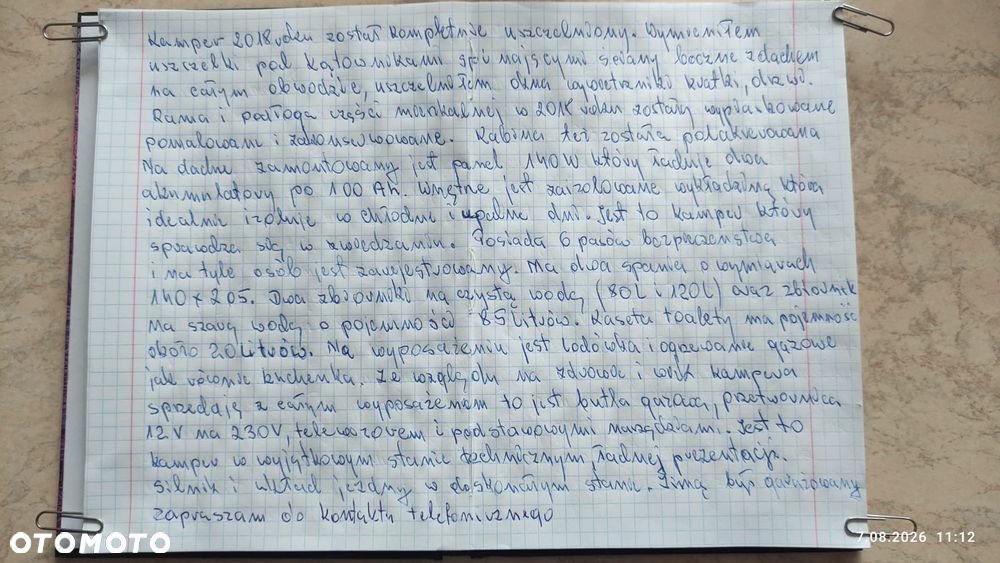 Kamper 2018 roku został kompletnie uszczelniony. Wymieniłem
uszczelki pod kątownikami spinającymi ściany boczne z dachem
na całym obwodzie, uszczelniłem okna wywietrzniki kratki, drzwi.
Rama i podłoga części mieszkalnej w 2018 roku zostały wypiaskowane
pomalowani i zakonserwowane. Kabina też została polakierowana
Na dachu zamontowany jest panel 140W który ładuje dwa
akumulatory po 100 Ah. Wnętrze jest zaizolowane wykładziną która
idealnie izoluje w chłodne i upalne dni. Jest to kamper który
sprawdza się w zwiedzaniu. Posiada 6 pasów bezpieczeństwa
i na tyle osób jest zarejestrowany. Ma dwa spania o wymiarach
140 x 205. Dwa zbiorniki na czystą wodę (80L i 120L) oraz zbiornik
na szarą wodę o pojemność 85 litrów. Kaseta toalety ma pojemność
około 20 litrów. Na wyposażeniu jest lodówka i ogrzewanie gazowe
jak również kuchenka. Ze względu na zdrowie i wiek kampera
sprzedaję z całym wyposażeniem to jest butla gazowa, przetwornica
12V na 230V, telewizorem i podstawowymi narzędziami. Jest to
kamper w wyjątkowym stanie technicznym, ładnej prezentacji.
Silnik i układ jezdny w doskonałym stanie. Zimą był garażowany
zapraszam do kontaktu telefonicznego
OTOMOTO
7.08.2026 11:12